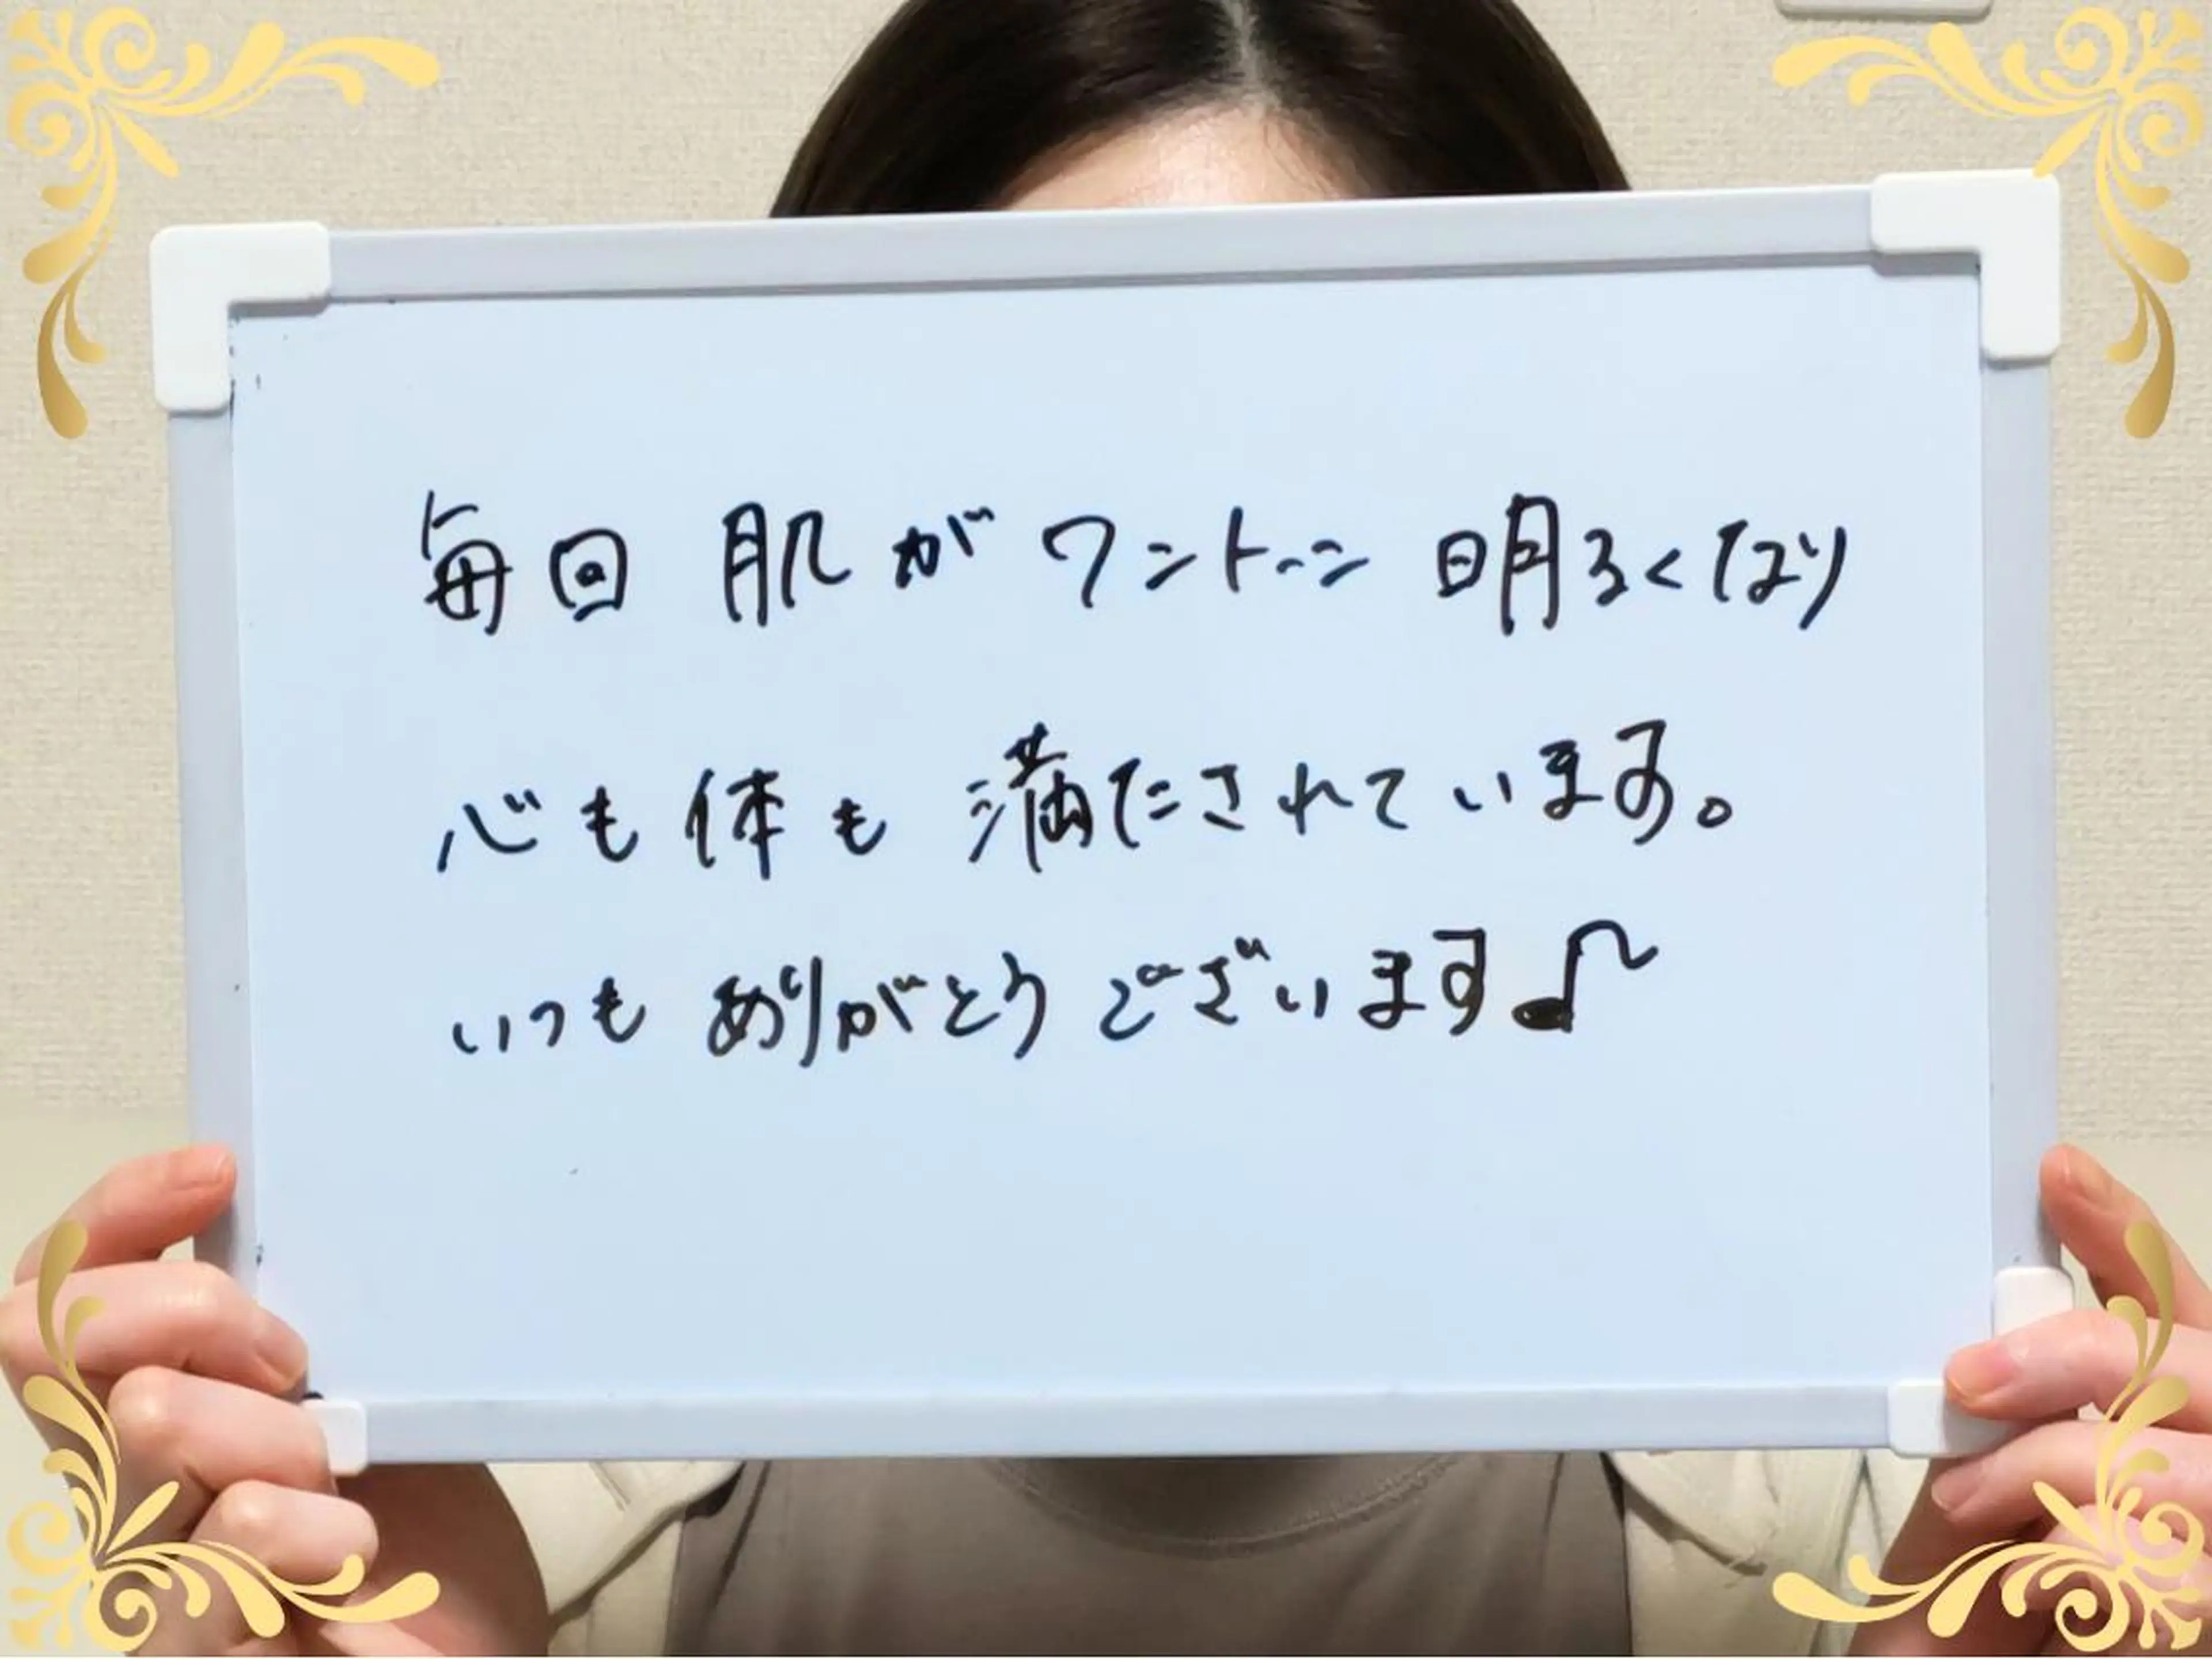 毎回 肌がワントーン 明るくなり
心も体も 満たされています。
いつも ありがとう ございます♪